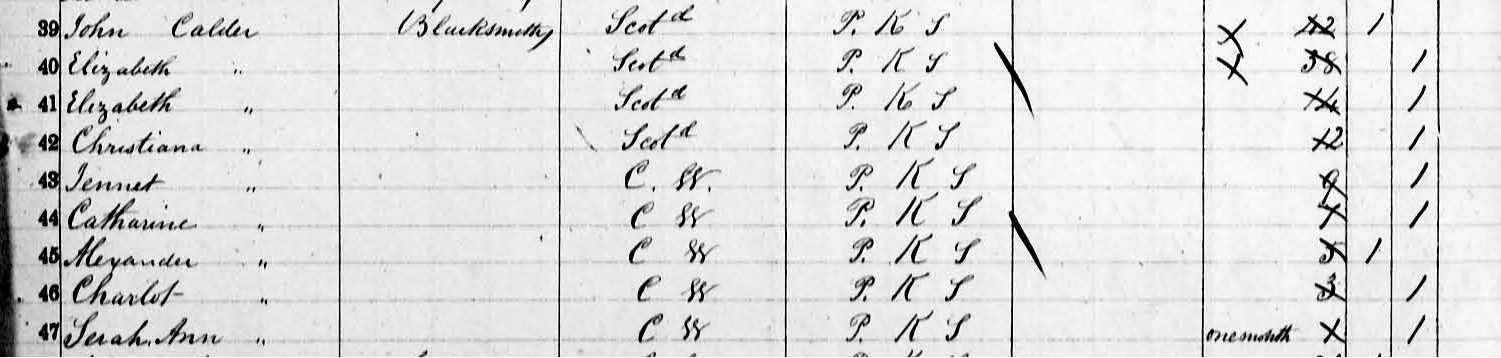 39 John Calder Blacksmith Scotd P. K S 42 1
40 Elizabeth " Scotd P. K S 38 1
41 Elizabeth " Scotd P. K S 14 1
42 Christiana " Scotd P. K S 12 1
43 Jennet " C. W. P. K S 9 1
44 Catharine " C W P. K S 7 1
45 Alexander " C W P. K S 5 1
46 Charlot " C W P. K S 3 1
47 Serah Ann " C W P. K S one month 1